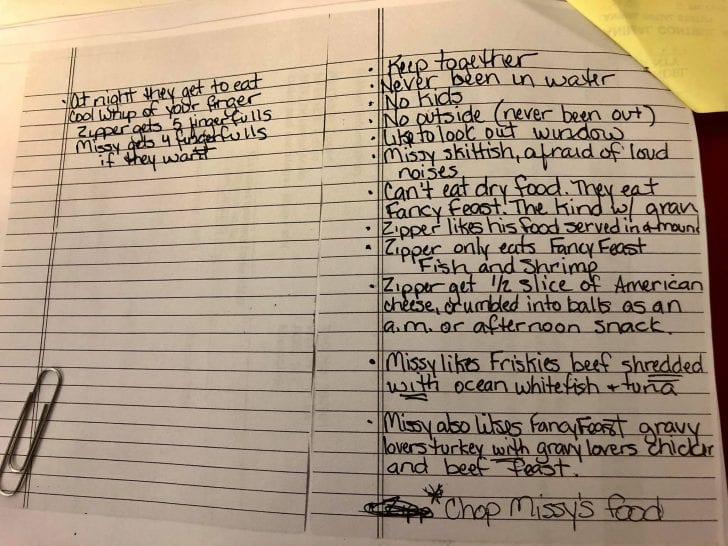 • At night they get to eat
Cool Whip of your finger
Zipper gets 5 fingerfulls
Missy gets 4 fingerfulls
if they want
• Keep together
• Never been in water
• No Kids
• No outside (never been out)
• Like to look out window
• Missy skittish, afraid of loud
noises
• Can't eat dry food. They eat
Fancy Feast. The Kind w/ grav
• Zipper likes his food served in a mound
• Zipper only eats Fancy Feast
Fish and Shrimp
• Zipper get 1/2 slice of American
cheese, crumbled into balls as an
a.m. or afternoon snack.
• Missy likes Friskies beef shredded
with ocean whitefish + tuna
• Missy also likes Fancy Feast gravy
lovers turkey with gravy lovers chicken
and beef feast.
* Chop Missy's food